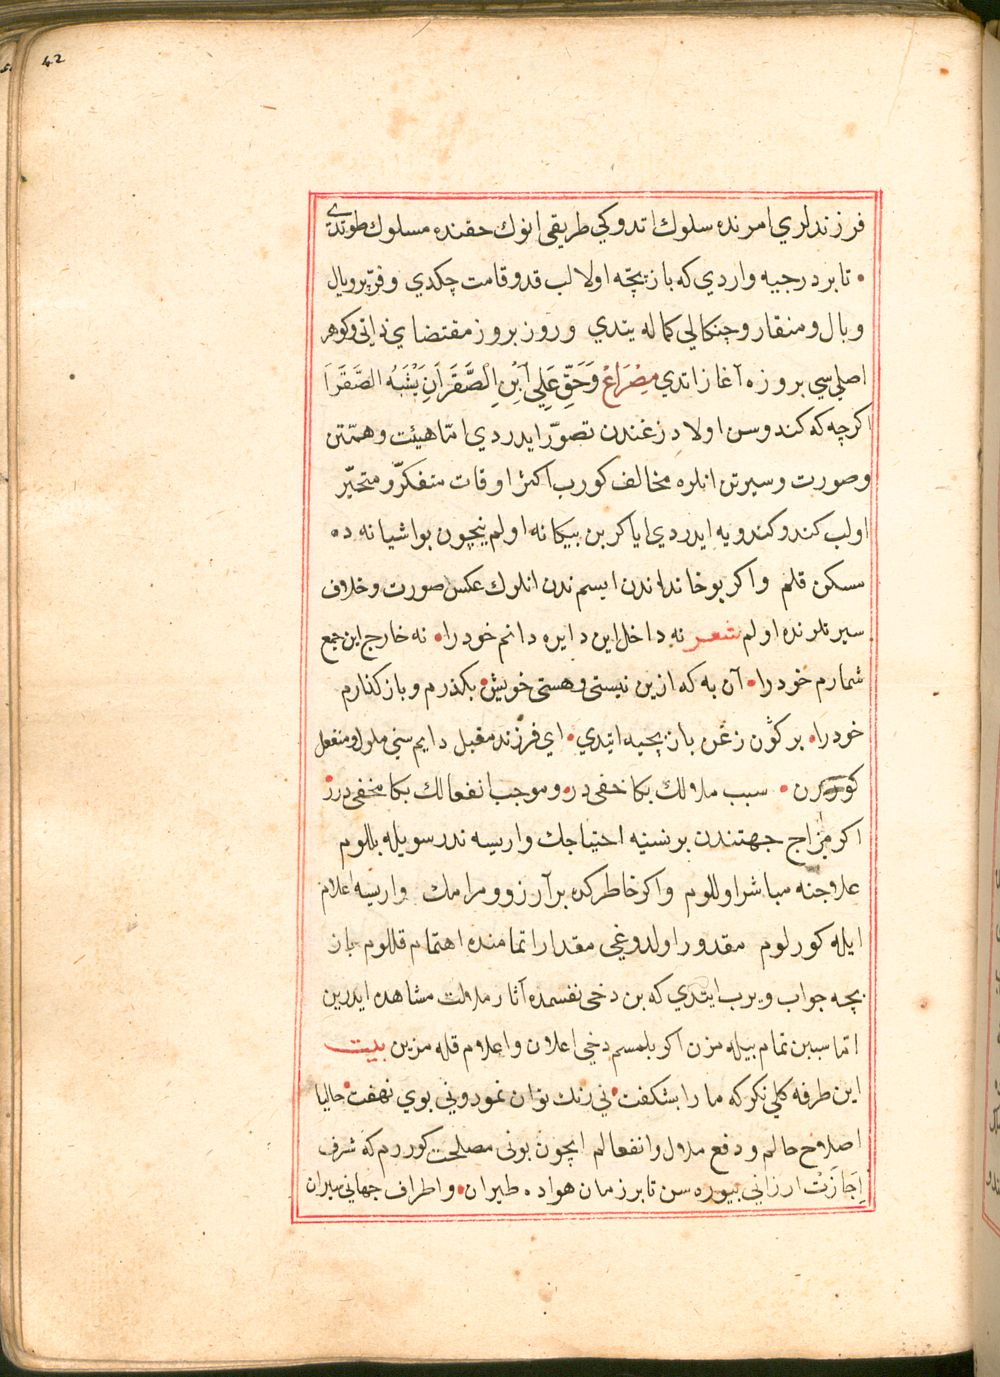 42
فرزندلري امرنده سلوك اتدوكي طريقى انوك حقنده مسلوك طوتدي
• تا بر درجيه واردي كه باز بچّه اولالب قد و قامت چكدي وفرّ پر و يال
و بال و منقار و چنكالي كماله يتدي وروز بروز مقتضاي ذاتى وكوهر
اصليسي بروزه آغاز اتدي مِصْرَاعْ وَحَقٌّ عَلِي آبْنِ الصَّقَرِ اَنْ يَشْبَهُ الصَّقَرَا
اكرچه كه كندوسن اولاد زغندن تصوّر ايدردي امّا هيئت وهمّتن
وصورت وسيرتن انلره مخالف كورب اكثر اوقات متفكّر و متحيّر
اولب كندو كندويه ايدردي ايا كر بن بيكانه اولم نيچون بو اشيانه ده
مسكن قلم واكر بو خانداندن ايسم ندن انلوك عكس صورت وخلاف
سيرتلرنده اولم شعر نه داخل اين دايره دانم خودرا• نه خارج اين جمع
شمارم خودرا• آن به كه ازين نيستى وهستى خويش• بكذرم و باز كذارم
خودرا• بر كون زغن باز بچيه ايتدي• اي فرزند مقبل دايم سني ملول ومنفعل
كوررن • سبب ملالك بكا خفى در• وموجب انفعالك بكا مخفى در•
اكر مزاج جهتندن بر نسنيه احتياجك واريسه ندر سويله بللوم
علاجنه مباشر اوللوم واكر خاطركده بر آرزو و مرامك واريسه اعلام
ايله كورلوم مقدور اولدوغي مقدار اتمامنده اهتمام قللوم باز
بچه جواب ويرب ايتدي كه بن دخى نفسمده آثار ملالت مشاهده ايدرين
امّا سببن تمام بيله مزن اكر بلمسم دخي اعلان واعلام قله مزين بيت
اين طرفه كلي نكر كه مارا بشكفت• ني رنك توان نمود وني بوي نهفت• حاليا
اصلاح حالم ودفع ملال وانفعالم ايچون بونى مصلحت كوررم كه شرف
اِجَازَتْ ارزاني بيوره سن تا بر زمان هواده طيران• واطراف جهاني سيران